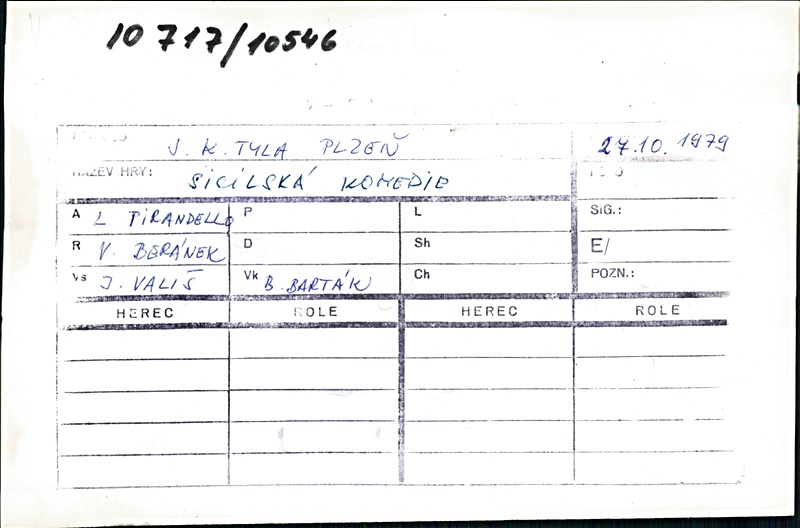 10 717/10546
J. K. TYLA PLZEŇ 27.10. 1979
NÁZEV HRY: SICILSKÁ KOMEDIE
A L PIRANDELLO P L SIG.:
R V. BERÁNEK D Sh E/
Vs J. VALIŠ Vk B. BARTÁK Ch POZN.:
HEREC ROLE HEREC ROLE